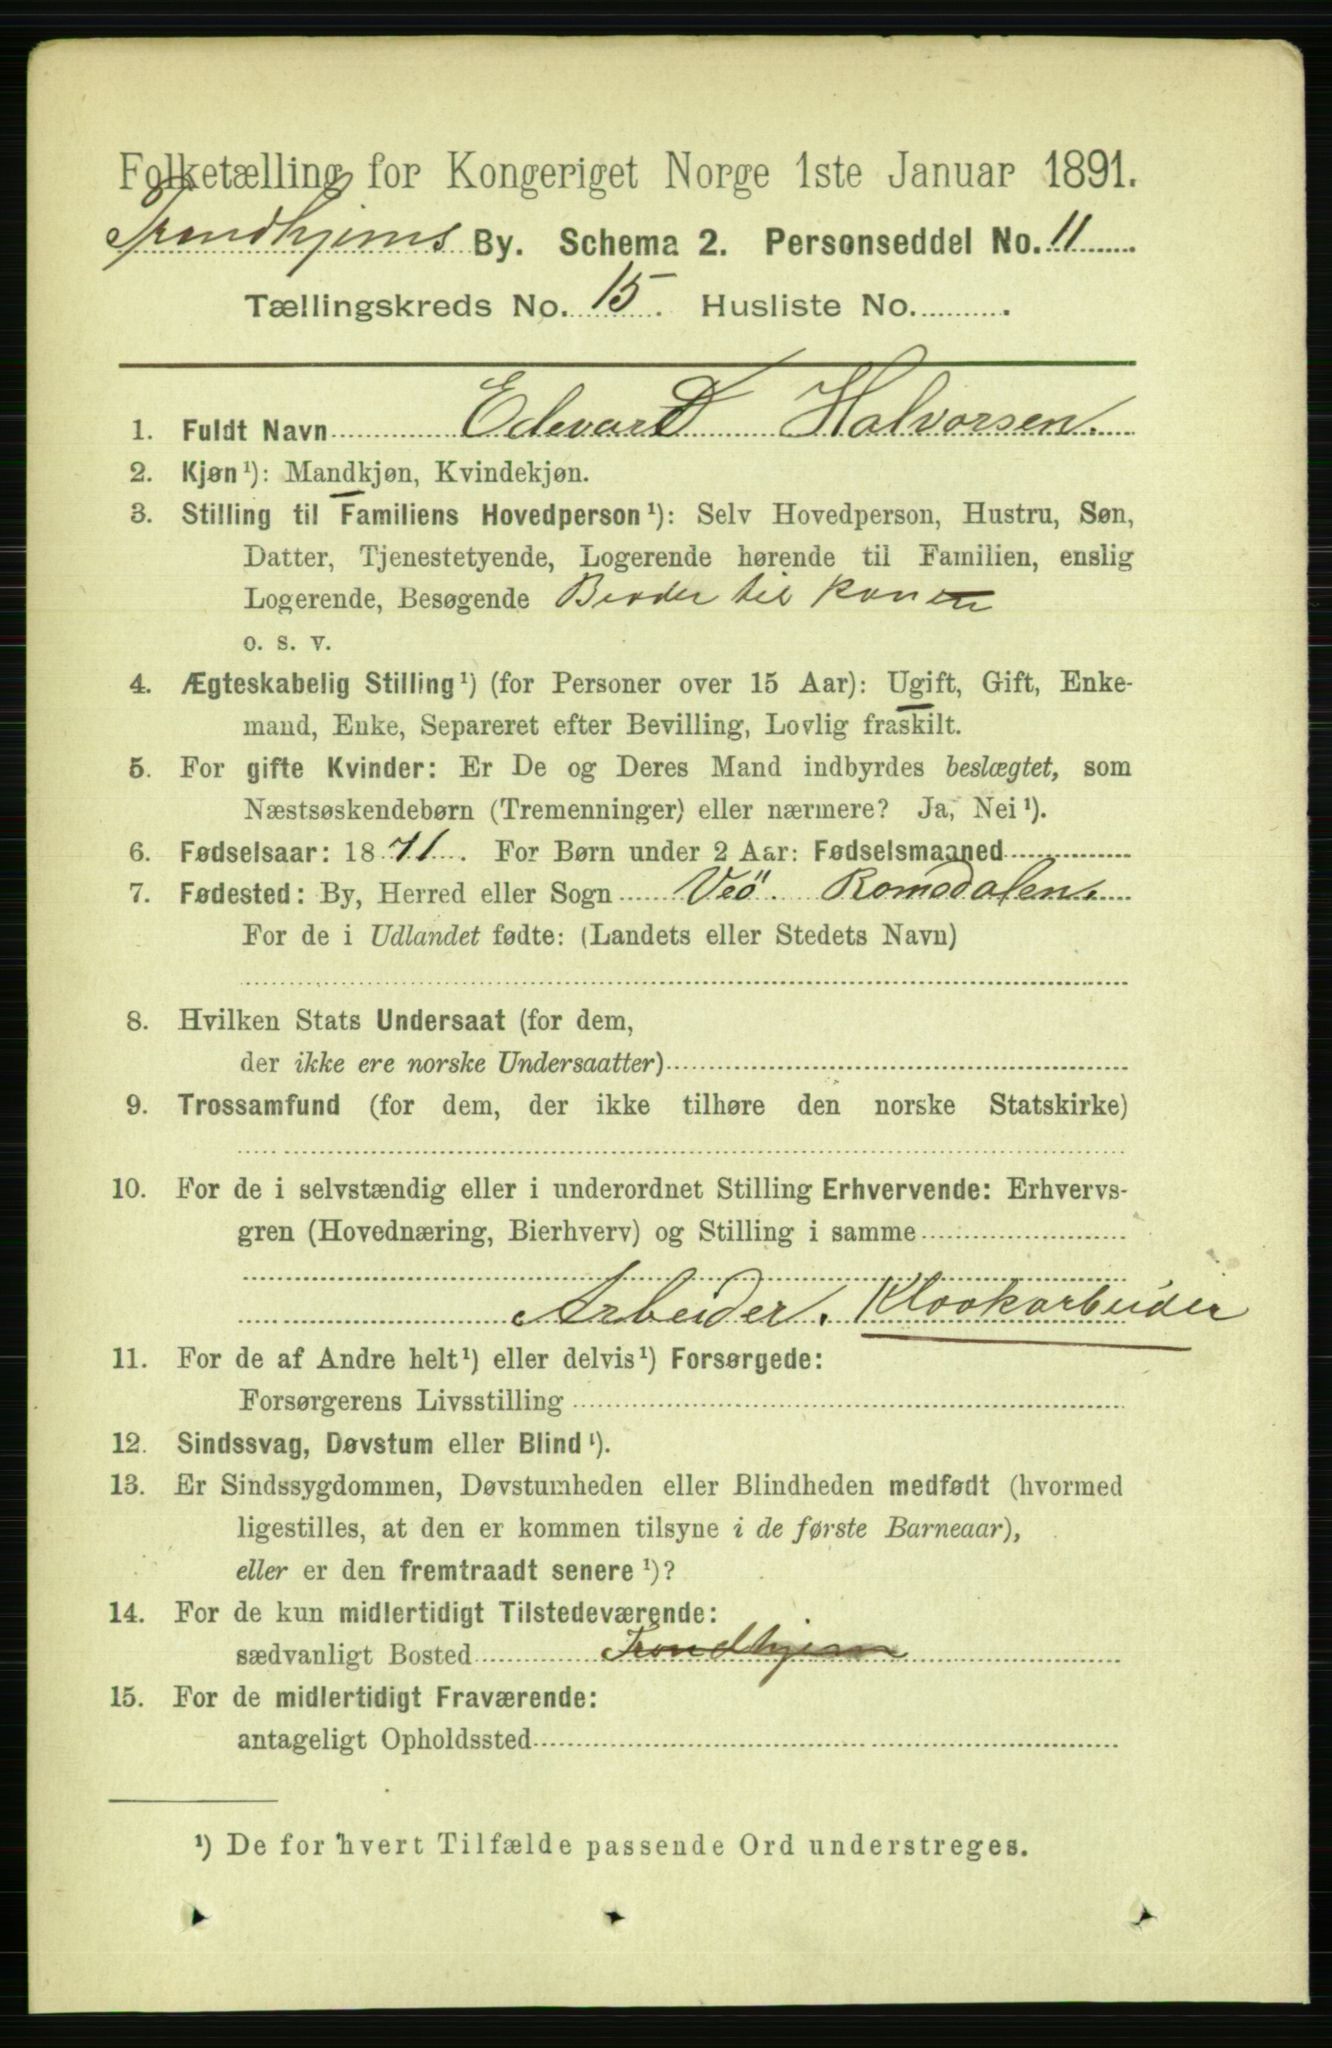 Folketælling for Kongeriget Norge 1ste Januar 1891.
Trondhjems By. Schema 2. Personseddel No. 11
Tællingskreds No. 15. Husliste No.
1. Fuldt Navn Edevard Halvorsen.
2. Kjøn ¹): Mandkjøn, Kvindekjøn.
3. Stilling til Familiens Hovedperson ¹): Selv Hovedperson, Hustru, Søn,
Datter, Tjenestetyende, Logerende hørende til Familien, enslig
Logerende, Besøgende Broder til konen
o. s. v.
4. Ægteskabelig Stilling ¹) (for Personer over 15 Aar): Ugift, Gift, Enke-
mand, Enke, Separeret efter Bevilling, Lovlig fraskilt.
5. For gifte Kvinder: Er De og Deres Mand indbyrdes beslægtet, som
Næstsøskendebørn (Tremenninger) eller nærmere? Ja, Nei ¹).
6. Fødselsaar: 1871. For Børn under 2 Aar: Fødselsmaaned
7. Fødested: By, Herred eller Sogn Veö. Romsdalen.
For de i Udlandet fødte: (Landets eller Stedets Navn)
8. Hvilken Stats Undersaat (for dem,
der ikke ere norske Undersaatter)
9. Trossamfund (for dem, der ikke tilhøre den norske Statskirke)
10. For de i selvstændig eller i underordnet Stilling Erhvervende: Erhvervs-
gren (Hovednæring, Bierhverv) og Stilling i samme
Arbeider. Kloakarbeider
11. For de af Andre helt ¹) eller delvis ¹) Forsørgede:
Forsørgerens Livsstilling
12. Sindssvag, Døvstum eller Blind ¹).
13. Er Sindssygdommen, Døvstumheden eller Blindheden medfødt (hvormed
ligestilles, at den er kommen tilsyne i de første Barneaar),
eller er den fremtraadt senere ¹)?
14. For de kun midlertidigt Tilstedeværende:
sædvanligt Bosted Trondhjem
15. For de midlertidigt Fraværende:
antageligt Opholdssted
¹) De for hvert Tilfælde passende Ord understreges.